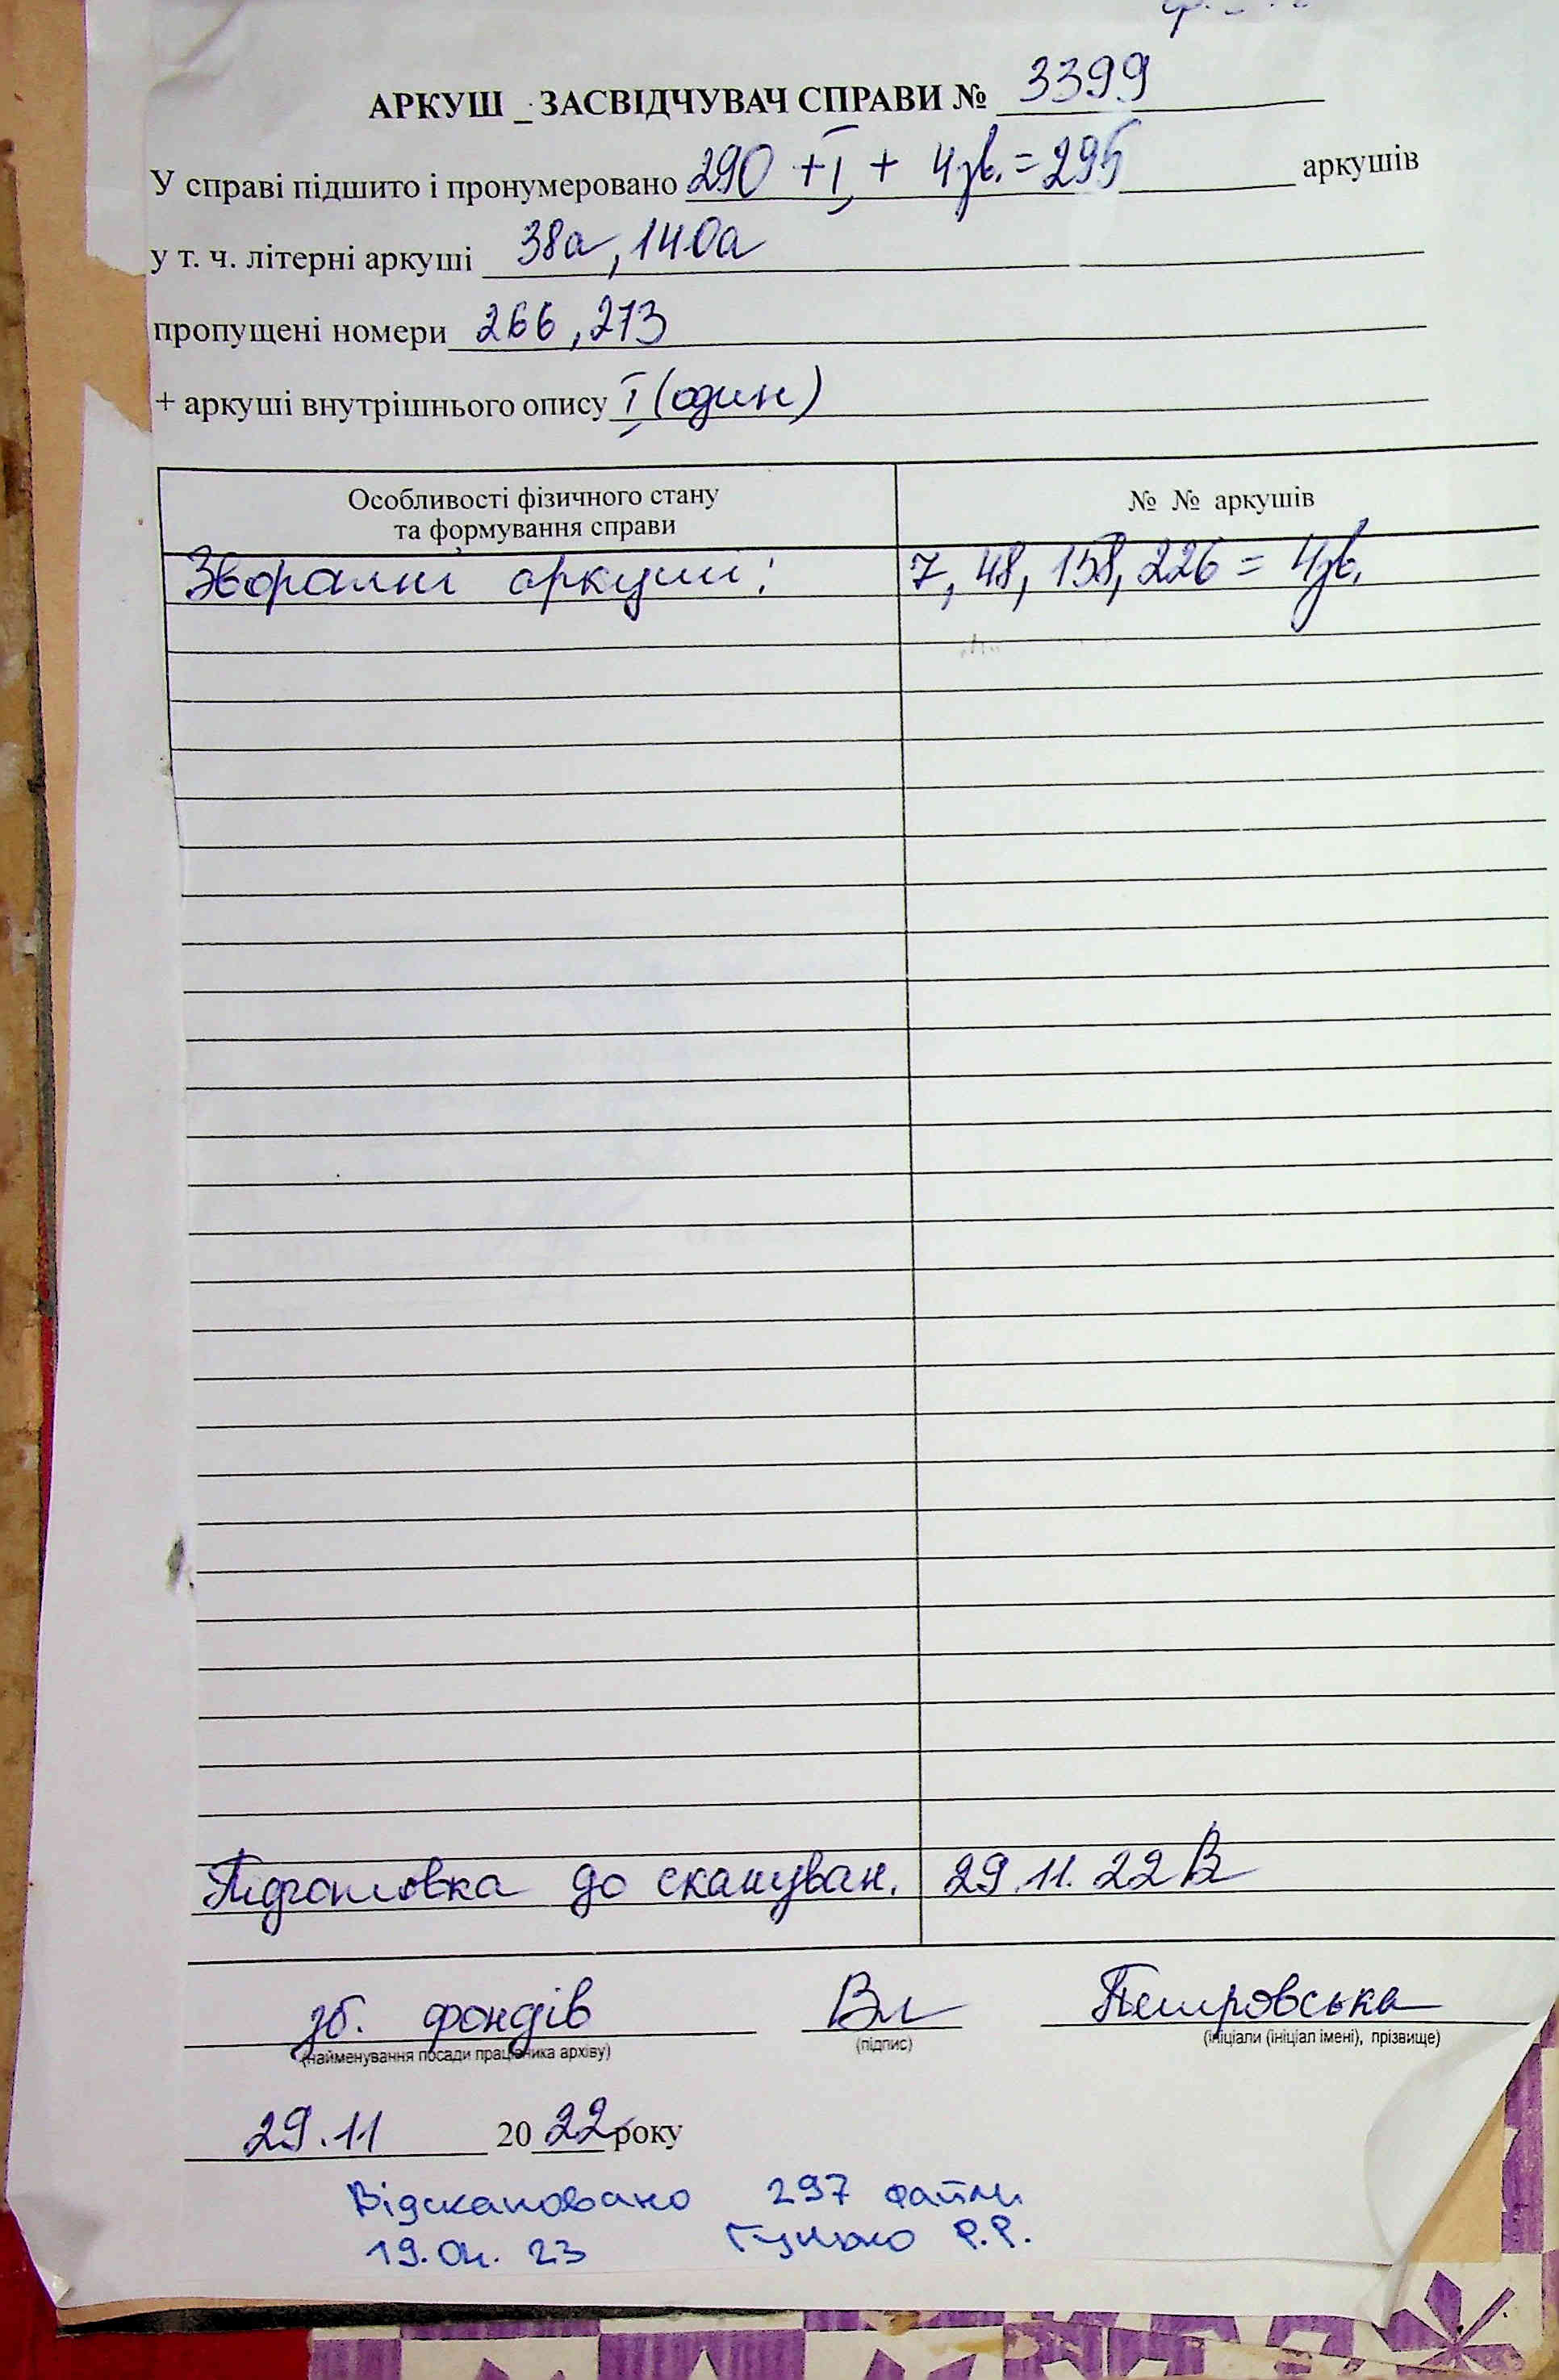 АРКУШ _ ЗАСВІДЧУВАЧ СПРАВИ № 3399
У справі підшито і пронумеровано 290 + I + 4зв. = 295 аркушів
у т. ч. літерні аркуші 38а, 140а
пропущені номери 266, 273
+ аркуші внутрішнього опису I (один)
Особливості фізичного стану та формування справи
№ № аркушів
Зворотні аркуші: 7, 48, 158, 226 = 4зв.
Підготовка до скануван. 29.11.22 В
зб. фондів Вл Петровська
(найменування посади працівника архіву) (підпис) (ініціали (ініціал імені), прізвище)
29.11 2022 року
Відскановано 297 файли
19.04.23 Гунько Р.Р.